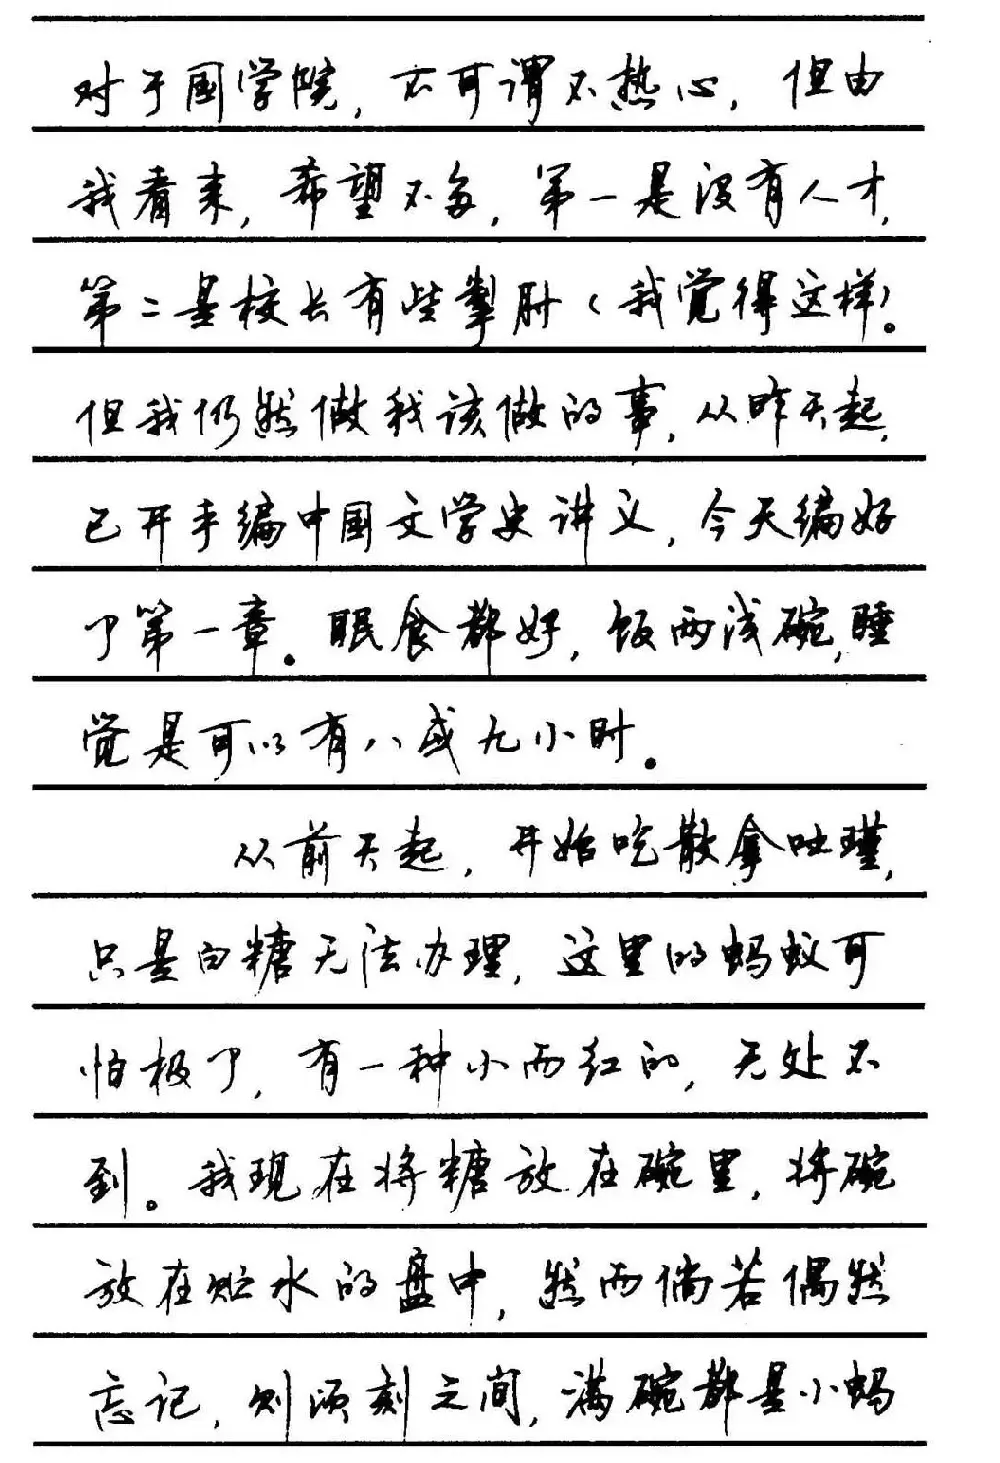 对于国学院，不可谓不热心，但由
我看来，希望不多，第一是没有人才，
第二是校长有些掣肘（我觉得这样）。
但我仍然做我该做的事，从昨天起，
已开手编中国文学史讲义，今天编好
了第一章。眠食都好，饭两浅碗，睡
觉是可以有八或九小时。
从前天起，开始吃散拿吐瑾，
只是白糖无法办理，这里的蚂蚁可
怕极了，有一种小而红的，无处不
到。我现在将糖放在碗里，将碗
放在贮水的盘中，然而倘若偶然
忘记，则顷刻之间，满碗都是小蚂